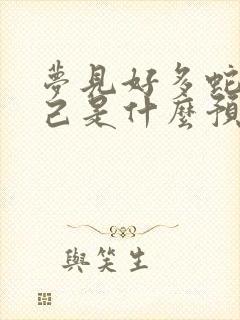 夢見好多蛇
己是什麼預
與笑生